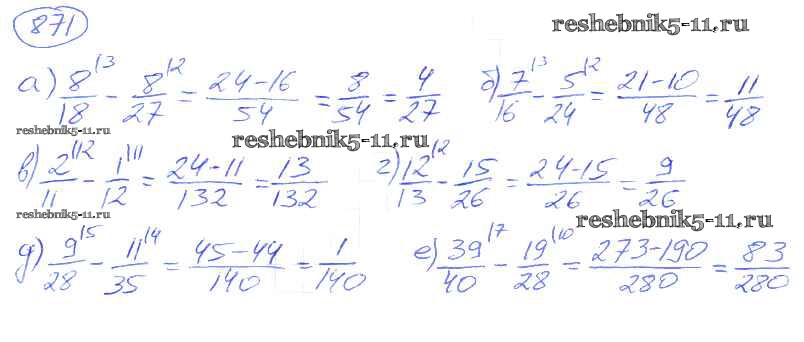 871
reshebnik5-11.ru
а) 8/18 |3 - 8/27 |2 = 24-16/54 = 8/54 = 4/27 б) 7/16 |3 - 5/24 |2 = 21-10/48 = 11/48
reshebnik5-11.ru reshebnik5-11.ru
в) 2/11 |12 - 1/12 |11 = 24-11/132 = 13/132 г) 12/13 |2 - 15/26 = 24-15/26 = 9/26
reshebnik5-11.ru reshebnik5-11.ru
д) 9/28 |5 - 11/35 |4 = 45-44/140 = 1/140 е) 39/40 |7 - 19/28 |10 = 273-190/280 = 83/280